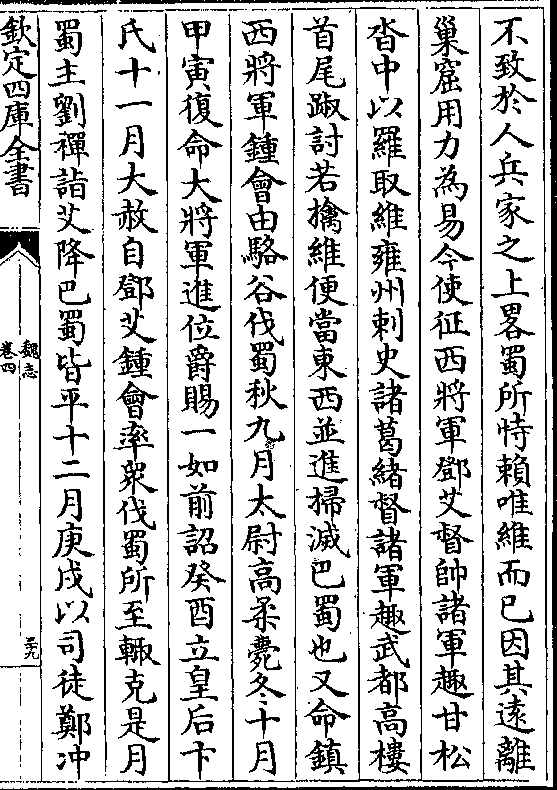 不致於人兵家之上畧蜀所恃賴唯維而已因其遠離
巢窟用力為易今使征西將軍鄧艾督帥諸軍趣甘松
沓中以羅取維雍州刺史諸葛緒督諸軍趣武都高樓
首尾踧討若擒維便當東西並進掃滅巴蜀也又命鎮
西將軍鍾會由駱谷伐蜀秋九月太尉高柔薨冬十月
甲寅復命大將軍進位爵賜一如前詔癸酉立皇后卞
氏十一月大赦自鄧艾鍾會率衆伐蜀所至輒克是月
蜀主劉禪詣艾降巴蜀皆平十二月庚戌以司徒鄭冲
欽定四庫全書
魏志
卷四
三九